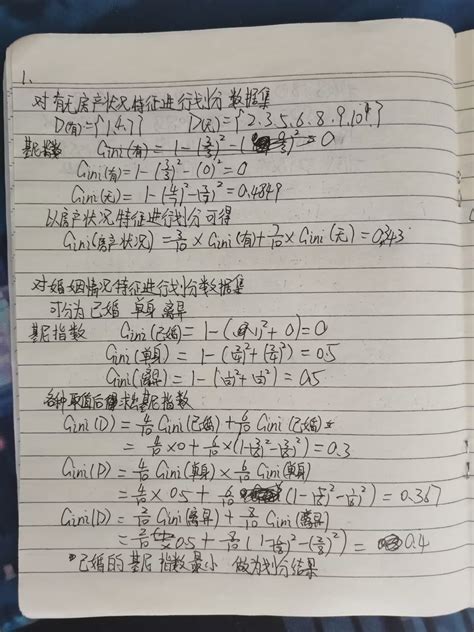 1.
对有无房产状况特征进行划分数据集
D(有)={1,4,7} D(无)={2,3,5,6,8,9,10}
基尼指数 Gini(有)=1-(3/3)²-(0/3)²=0
Gini(有)=1-(3/3)²-(0)²=0
Gini(无)=1-(4/7)²-(3/7)²=0.4849
以房产状况特征进行划分可得
Gini(房产状况)=3/10×Gini(有)+7/10×Gini(无)=0.343
对婚姻情况特征进行划分数据集
可分为 已婚 单身 离异
基尼指数 Gini(已婚)=1-()²+0)=0
Gini(单身)=1-(2/4)²+(2/4)²=0.5
Gini(离异)=1-(½)²+(½)²=0.5
各种取值后求基尼指数
Gini(D)=4/10 Gini(已婚)+6/10 Gini(已婚)
=4/10×0+6/10×(1-(3/6)²-(3/6)²)=0.3
Gini(D)=4/10 Gini(单身)×6/10 Gini(单身)
=4/10×0.5+6/10(1-(5/6)²-(1/6)²)=0.367
Gini(D)=2/10 Gini(离异)+8/10 Gini(离异)
=2/10×0.5+8/10(1-(6/8)²-(2/8)²)=0.4
已婚的基尼指数最小 做为划分结果